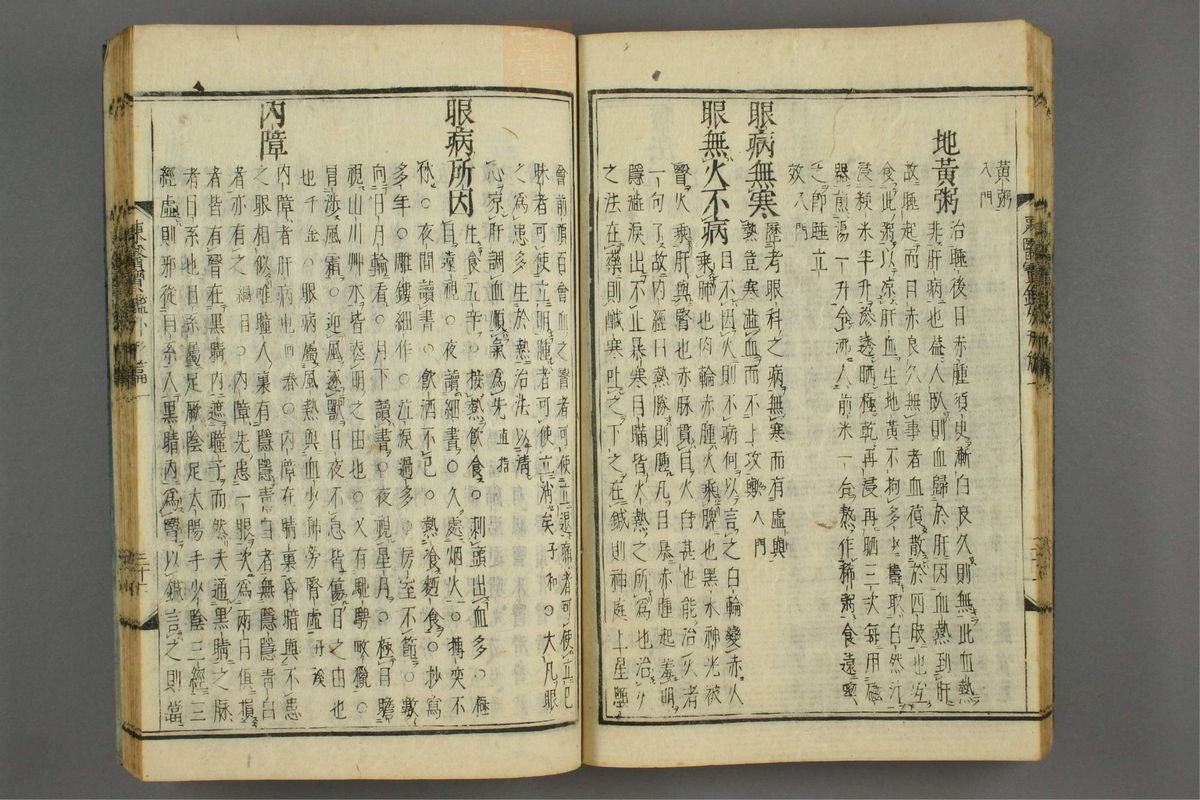 黃粥
入門
地黃粥
治睡後目赤腫須臾漸白良久則無此血熱
非肝病也盖人臥則血歸於肝因血熱到肝
故睡起而目赤良久無事者血復散於四肢也宜
食此粥以凉肝血生地黃不拘多少擣取自然汁
浸粳米半升滲透晒極乾再浸再晒三次每用磁
器煎湯一升令沸入前米一合熱作稀粥食遠喫
之卽睡立
效入門
眼病無寒
歷考眼科之病無寒而有虛與
熱豈寒澁血而不上攻歟 入門
眼無火不病
目不因火則不病何以言之白輪變赤火
乘肺也肉輪赤腫火乘脾也黑水神光被
瞖火乘肝與腎也赤脉貫目火自甚也能治火者
一句了故內經曰熱勝則腫凡目暴赤腫起羞明
隱澁淚出不止暴寒目瞞皆火熱之所爲也治火
之法在藥則鹹寒吐之下之在鍼則神庭上星顖
會前頂百會血之瞖者可使立退痛者可使立已
昧者可使立明腫者可使立消矣子和○大凡眼
之爲患多生於熱治法以淸
心凉肝調血順氣爲先 直指
眼病所因
生食五辛○接熱飮食○刺頭出血多○極
目遠視○夜讀細書○久處烟火○搏奕不
休○夜間讀書○飮酒不已○熱飡麵食○抄寫
多年○雕鏤細作○泣淚過多○房室不節○數
向日月輪看○月下讀書○夜視星月○極目瞻
視山川艸木皆喪明之由也○又有馳騁畋獵○
冒涉風霜○迎風逐獸日夜不息皆傷目之由也
也千金○眼病屬風熱與血少神勞腎虛丹溪
內障
內障者肝病也 ○內障在睛裏昏暗與不患
之眼相似唯瞳人裏有隱隱靑白者無隱隱靑白
者亦有之綱目○內障先患一眼次爲兩目俱損
者皆有瞖在黑睛內遮瞳子而然夫通黑睛之脉
者目系也目系屬足厥陰足太陽手少陰三經三
經虛則邪從目系入黑睛內爲瞖以鍼言之則當
東醫寶鑑外形篇一
東醫寶鑑外形篇一